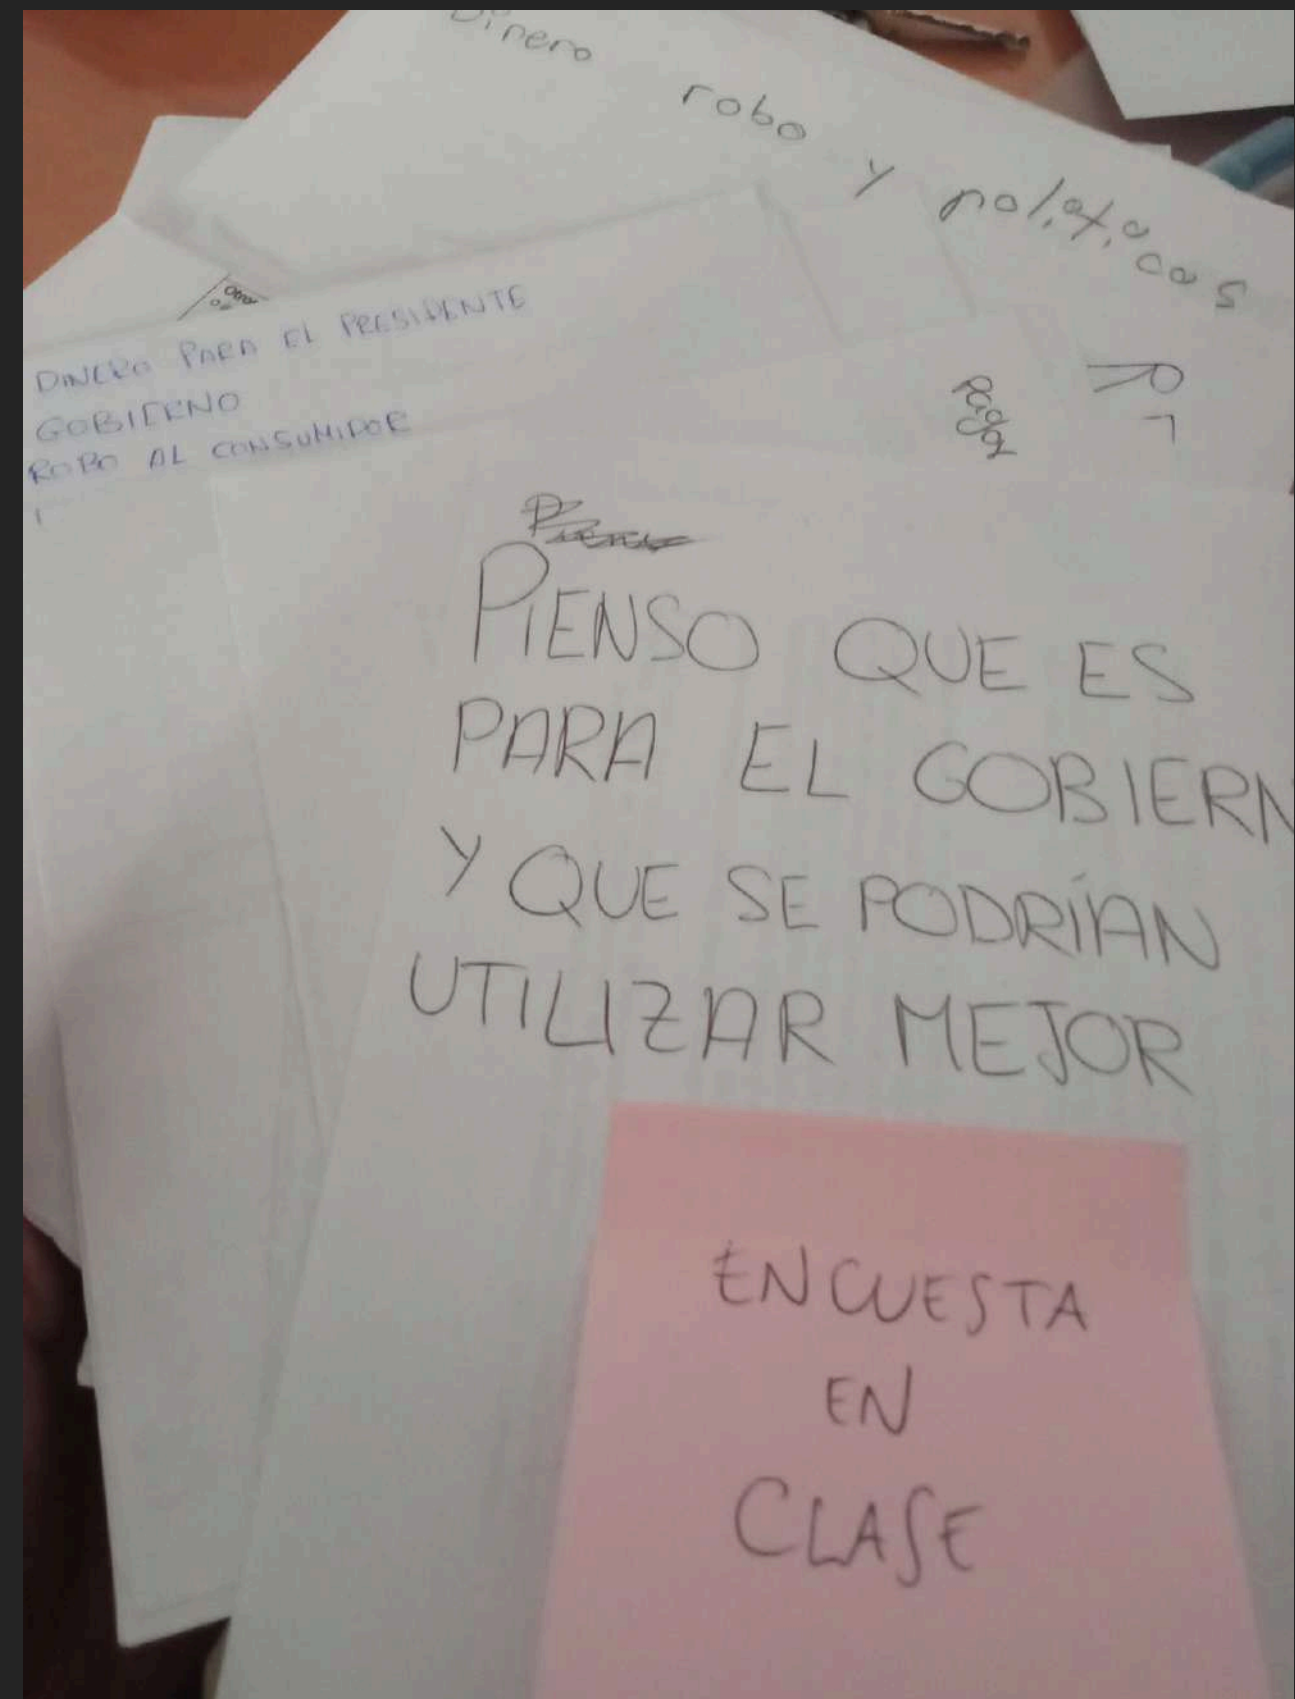 Dinero robo y políticos
DINERO PARA EL PRESIDENTE
GOBIERNO
ROBO AL CONSUMIDOR
Pagar
PIENSO QUE ES
PARA EL GOBIERN
Y QUE SE PODRÍAN
UTILIZAR MEJOR
ENCUESTA
EN
CLASE